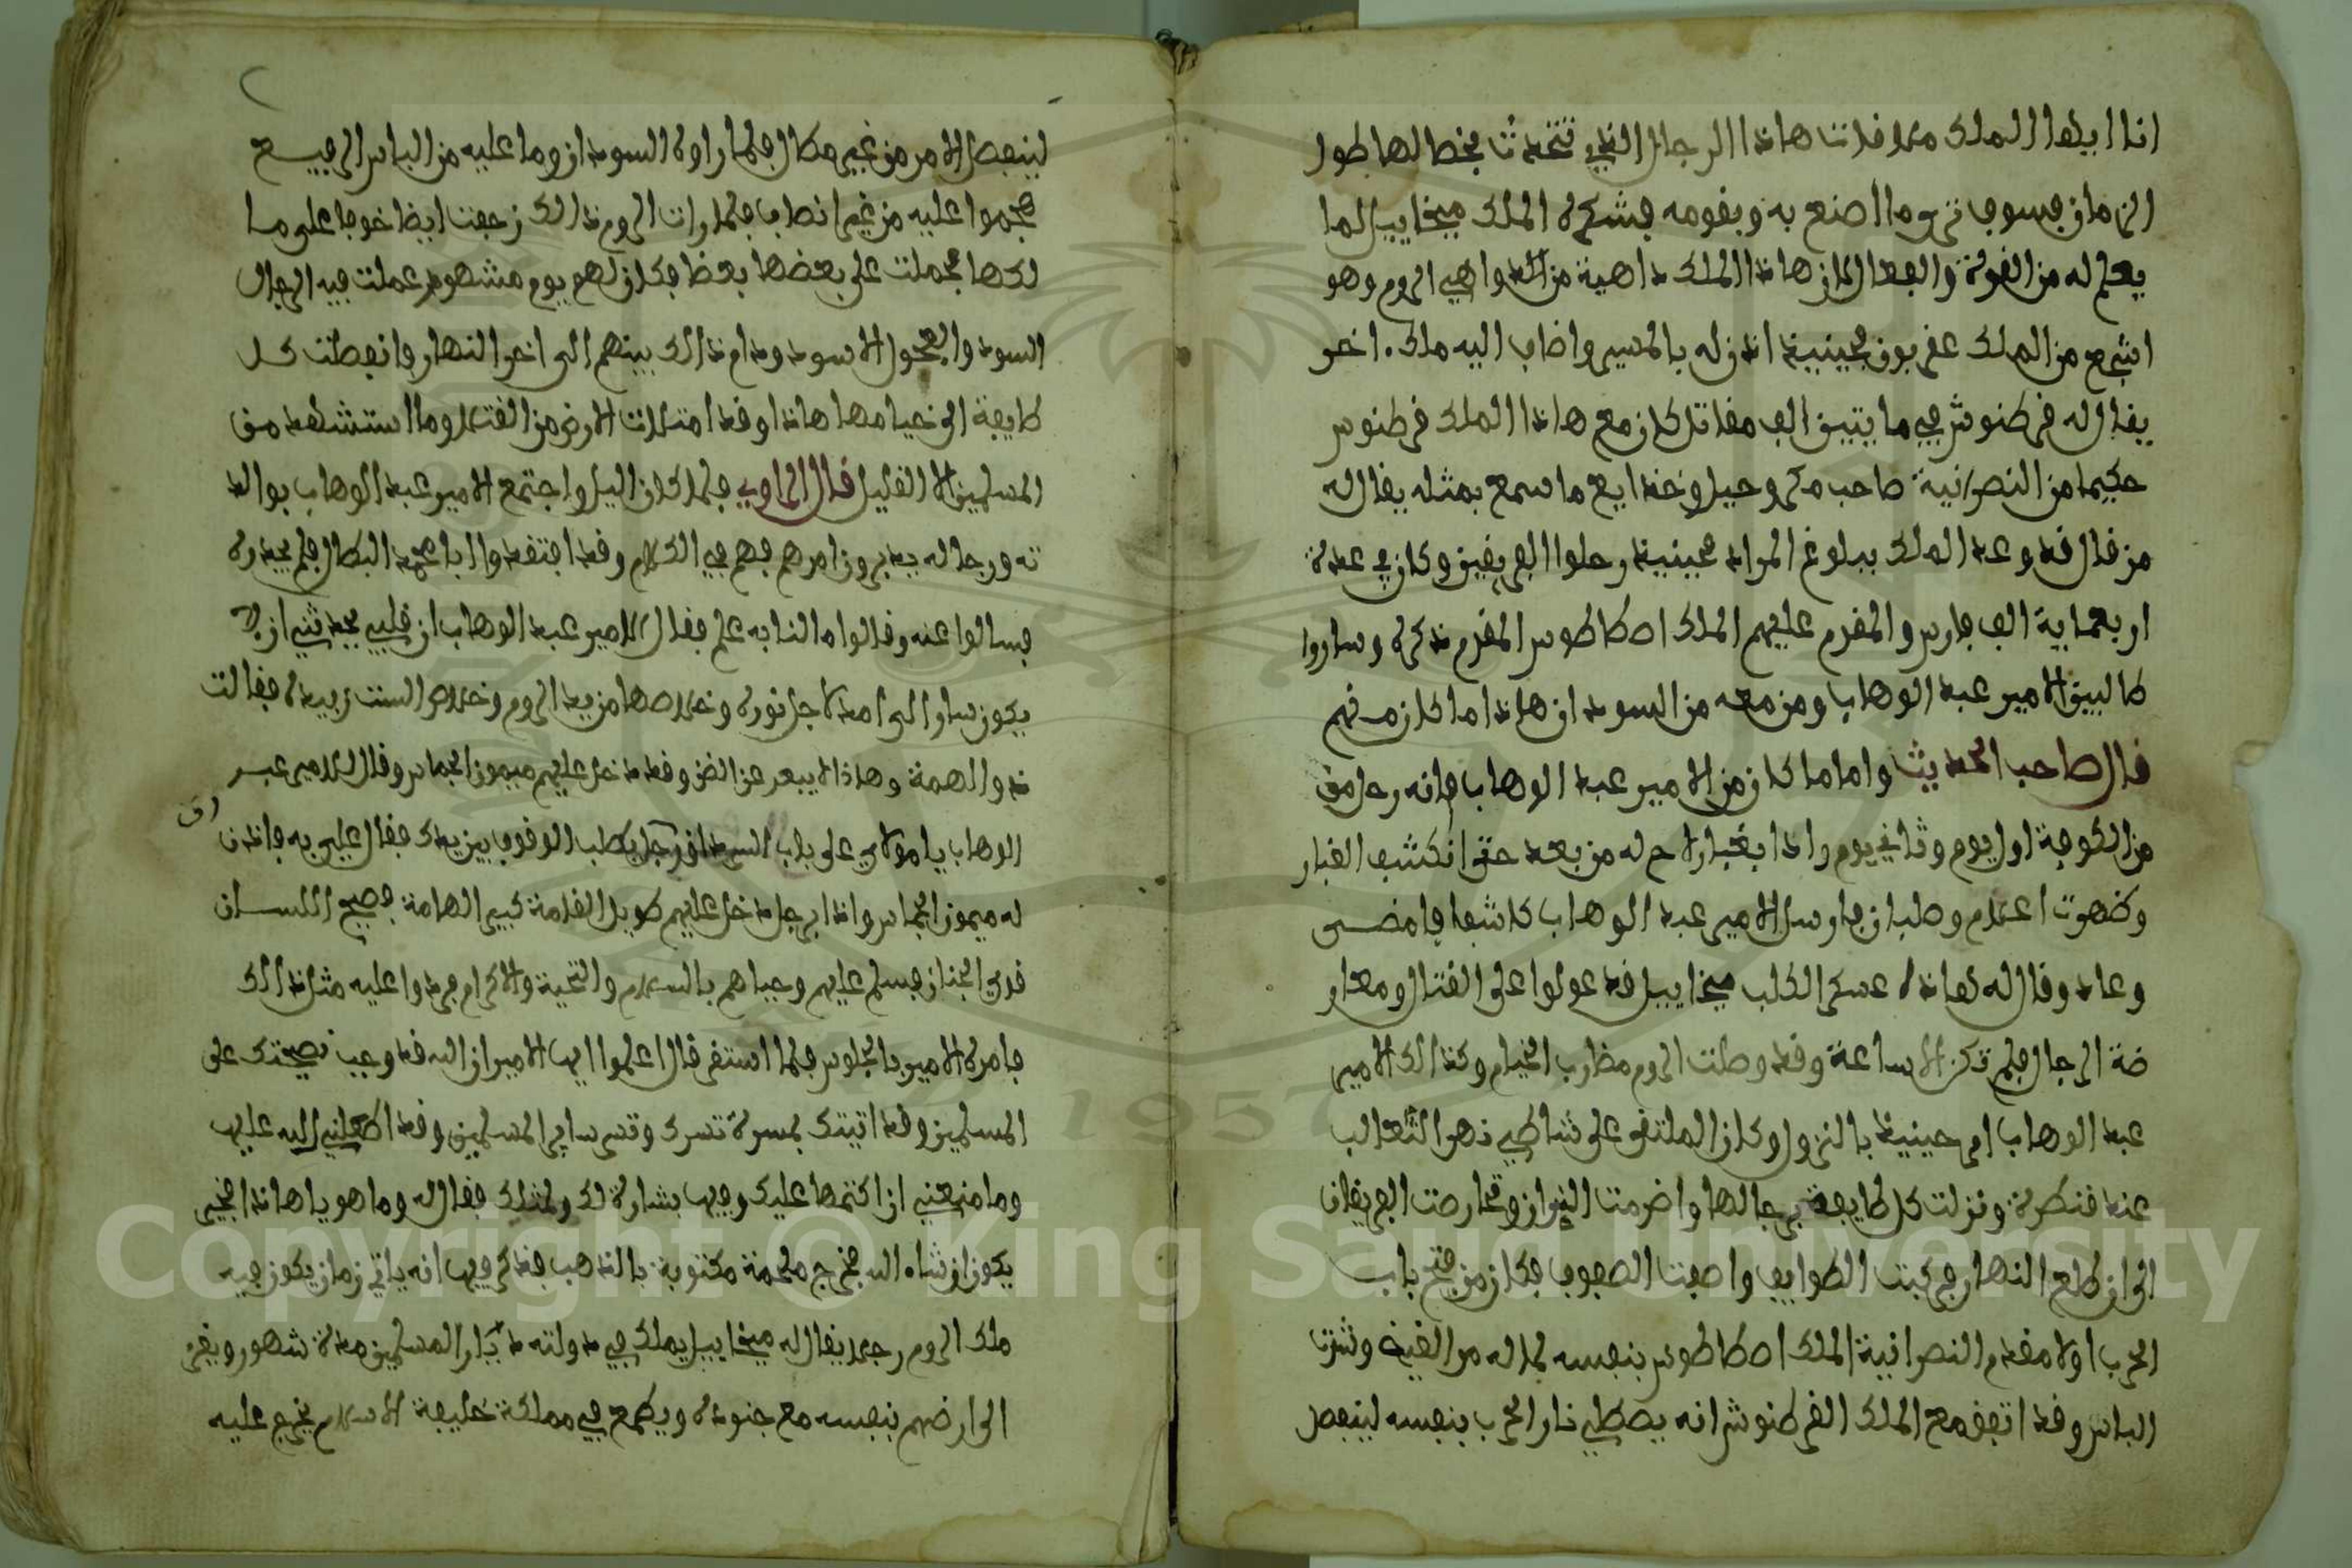 انا ايها الملك مما فلت هاذا الرجال الذي تتحدث بخصالها طول
الزمان فسوف ترى ما اصنع به وبقومه فشكره الملك ميخاييل لما
يعلم له من القوة والفعال لان هاذا الملك داهية من الدواهي الروم وهو
اشجع من الملك عفربون فحينيذ اذن له بالمسير واضاف اليه ملك اخر
يقال له قرطنوش في مايتين الف مقاتل كان مع هاذا الملك قرطنوس
حكيما من النصرانية صاحب مكر وحيل وخدايع ما سمع بمثله يقال له
من قال قد وعد الملك ببلوغ المراد فحينيذ رحلوا الفريقين وكان في عدة
اربعماية الف فارس والمقدم عليهم الملك اصطاطوس المقدم ذكره وساروا
طالبين الامير عبد الوهاب ومن معه من السود ان هاذا ما كان منهم
قال صاحب الحديث واما ما كان من الامير عبد الوهاب فانه رحل من
من الكوفة اول يوم وثاني يوم واذا بغبار لاح له من بعد حتى انكشف الغبار
وظهرت اعلام وصلبان فارسل الامير عبد الوهاب كاشفا فامضى
وعاد وقال له هاذه عسكر الكلب ميخاييل قد عولوا على القتال ومعار
ضة الرجال فلم تكن الا ساعة وقد وصلت الروم مضارب الخيام وكذالك الامير
عبد الوهاب امر حينيذ بالنزول وكان الملتقى على شاطي نهر الثعالب
عند قنطرة ونزلت كل طايفة برجالها واضرمت النيران وتحارصت الفريقان
الى ان طلع النهار فركبت الطوايف واصفت الصفوف فكان من فتح باب
الحرب اولا مقدم النصرانية الملك اصطاطوس بنفسه لما له من الغيض وشدت
الباس وقد اتفق مع الملك القرطنوش انه يصطلي نار الحرب بنفسه لينفصل
لينفصل الامر من غير مطال فلما راوه السودان وما عليه من الباس الرفيع
هجموا عليه من غير انصاف فلما رات الروم ذالك زحفت ايضا خوفا على ما
لكها فحملت على بعضها بعض فكان لهم يوم مشهود عملت فيه الرجال
السود والفحول الاسود ودام ذالك بينهم الى اخر النهار وانفصلت كل
طايفة الى خيامها هاذا وقد امتلات الارض من القتلا وما استشهد من
المسلمين الا القليل قال الراوي فلما كان اليل واجتمع الامير عبد الوهاب بوالد
ته ورجاله يدبرون امرهم فهم في الكلام وقد افتقدوا ابا محمد البطال فلم يجدوه
فسالوا عنه وقالوا ما لنا به علم فقال الامير عبد الوهاب ان قلبي يحدثني ان لا
يكون سار الى امد لاجل نوره وخلاصها من يد الروم وخلاص السنت زبيده فقالت
ذو الهمة وهاذا لا يبعد عن الضن وقد دخل عليهم ميمون الجماس وقال للامير عبد
الوهاب يا مولاي على باب السرداق رجل يطلب الوقوف بين يديك فقال علي به فاذن
له ميمون الجماس واذا برجل دخل عليهم طويل القامة كبير الهامة فصيح اللسان
قوي الجنان فسلم عليهم وحياهم بالسلام والتحية والاكرام فردوا عليه مثل ذالك
فامره الامير بالجلوس فلما استقر قال اعلموا ايها الامير ان الله قد وجب نصيحتك على
المسلمين وقد اتيتك بمسرة تسرك وتسر ساير المسلمين وقد اطلعني الله عليها
وما منعني ان اكتمها عليك وفيها بشارة لك ولمثلك فقال له وما هو يا هاذا الخبر
يكون ان شاء الله فخرج ملحمة مكتوبة بالذهب فذكر فيها انه ياتي زمان يكون فيه
ملك الروم رجلا يقال له ميخاييل يملك في دولته ديار المسلمين مدة شهور ويغزي
الى ارضهم بنفسه مع جنوده ويطمع في مملكة خليفة الاسلام يخرج عليه
Copyright © King Saud University
1957